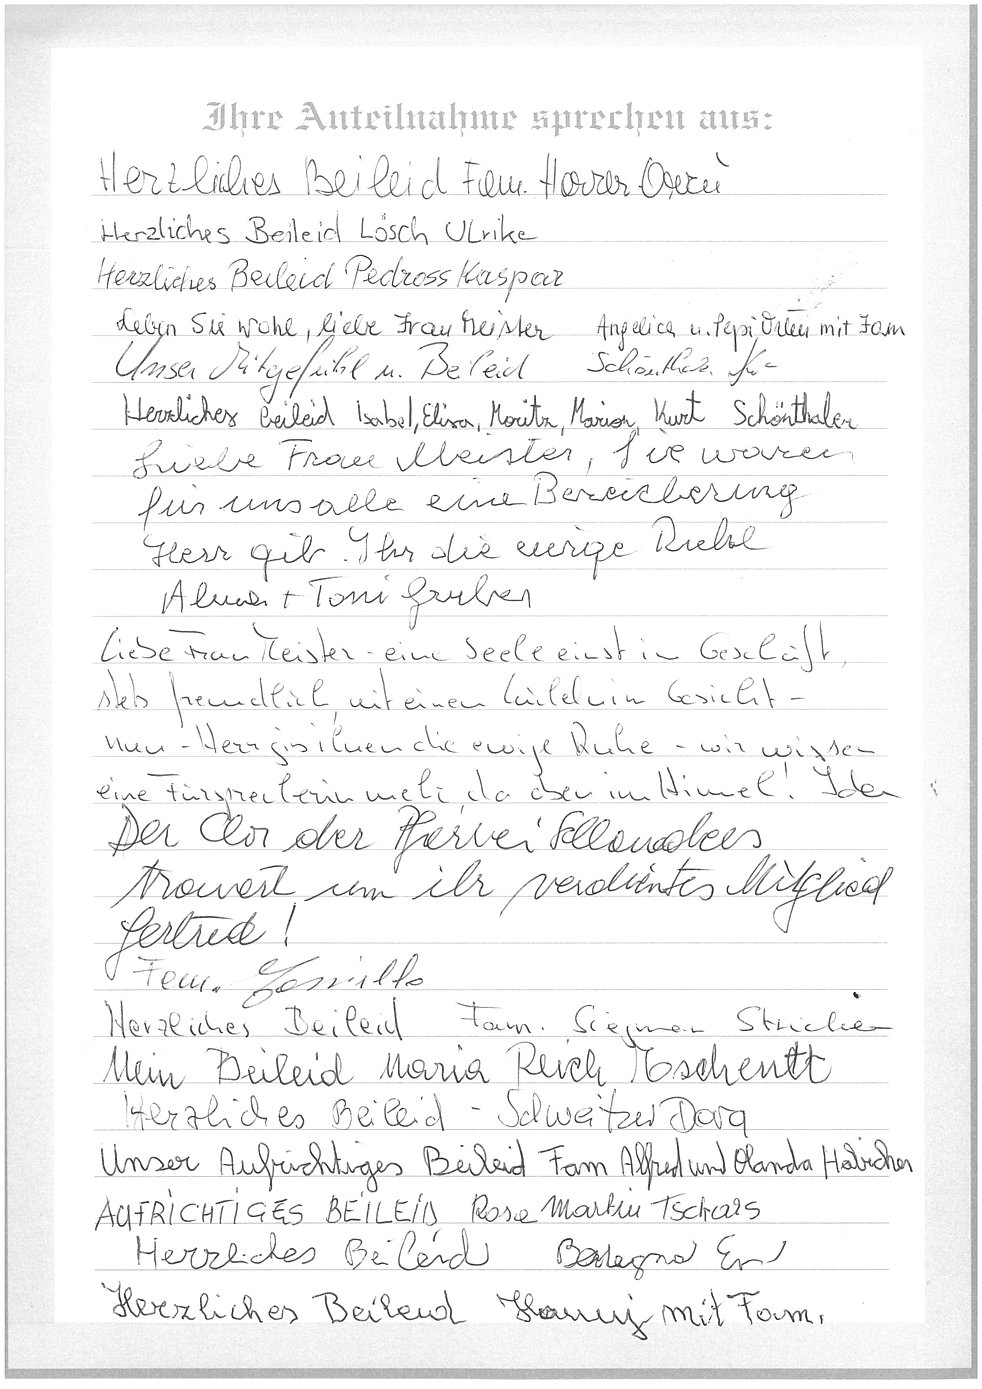 Ihre Anteilnahme sprechen aus:
Herzliches Beileid Fam. Horrer
Herzliches Beileid Lösch Ulrike
Herzliches Beileid Pedross Kaspar
Leben Sie wohl, liebe Frau Meister Angelica u. Pepi mit Fam
Unser Mitgefühl u. Beileid
Herzliches Beileid Isabel, Elisa, Moritz, Marion, Kurt Schönthaler
Liebe Frau Meister, Sie waren
für uns alle eine Bereicherung
Herr gib Ihr die ewige Ruhe
+ Toni Gruber
Liebe Frau Meister - eine Seele einst im Geschäft,
stets freundlich, mit einem Lächeln im Gesicht -
nun - Herr gib ihnen die ewige Ruhe - wir wissen
eine Fürsprecherin mehr da oben im Himmel!
Der Chor der Pfarrei
trauert um ihr verdientes Mitglied
Gertrud!
Fam.
Herzliches Beileid Fam. Stricker
Mein Beileid Maria Reich
Herzliches Beileid - Schweitzer Dora
Unser Aufrichtiges Beileid Fam Alfred und Olanda
AUFRICHTIGES BEILEID Rosa Martin Tschars
Herzliches Beileid
Herzliches Beileid Hanny mit Fam.